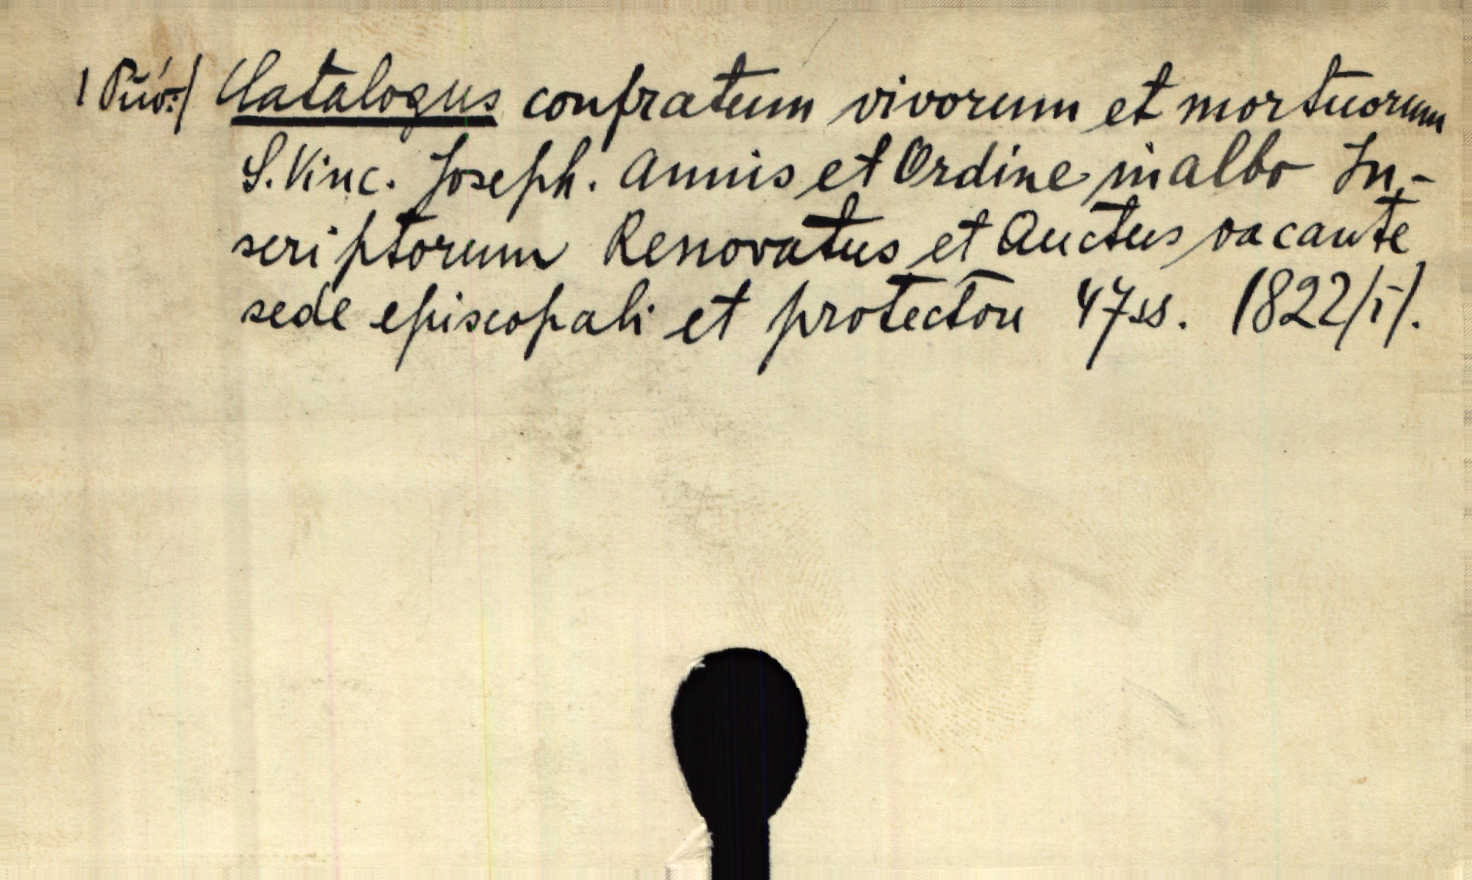 Catalogus confratum vivorum et mortuorum
S. Vinc. Joseph. annis et Ordine in albo In-
scriptorum Renovatus et Auctus vacante
sede episcopali et protectou 47 ss. 1822/i/.